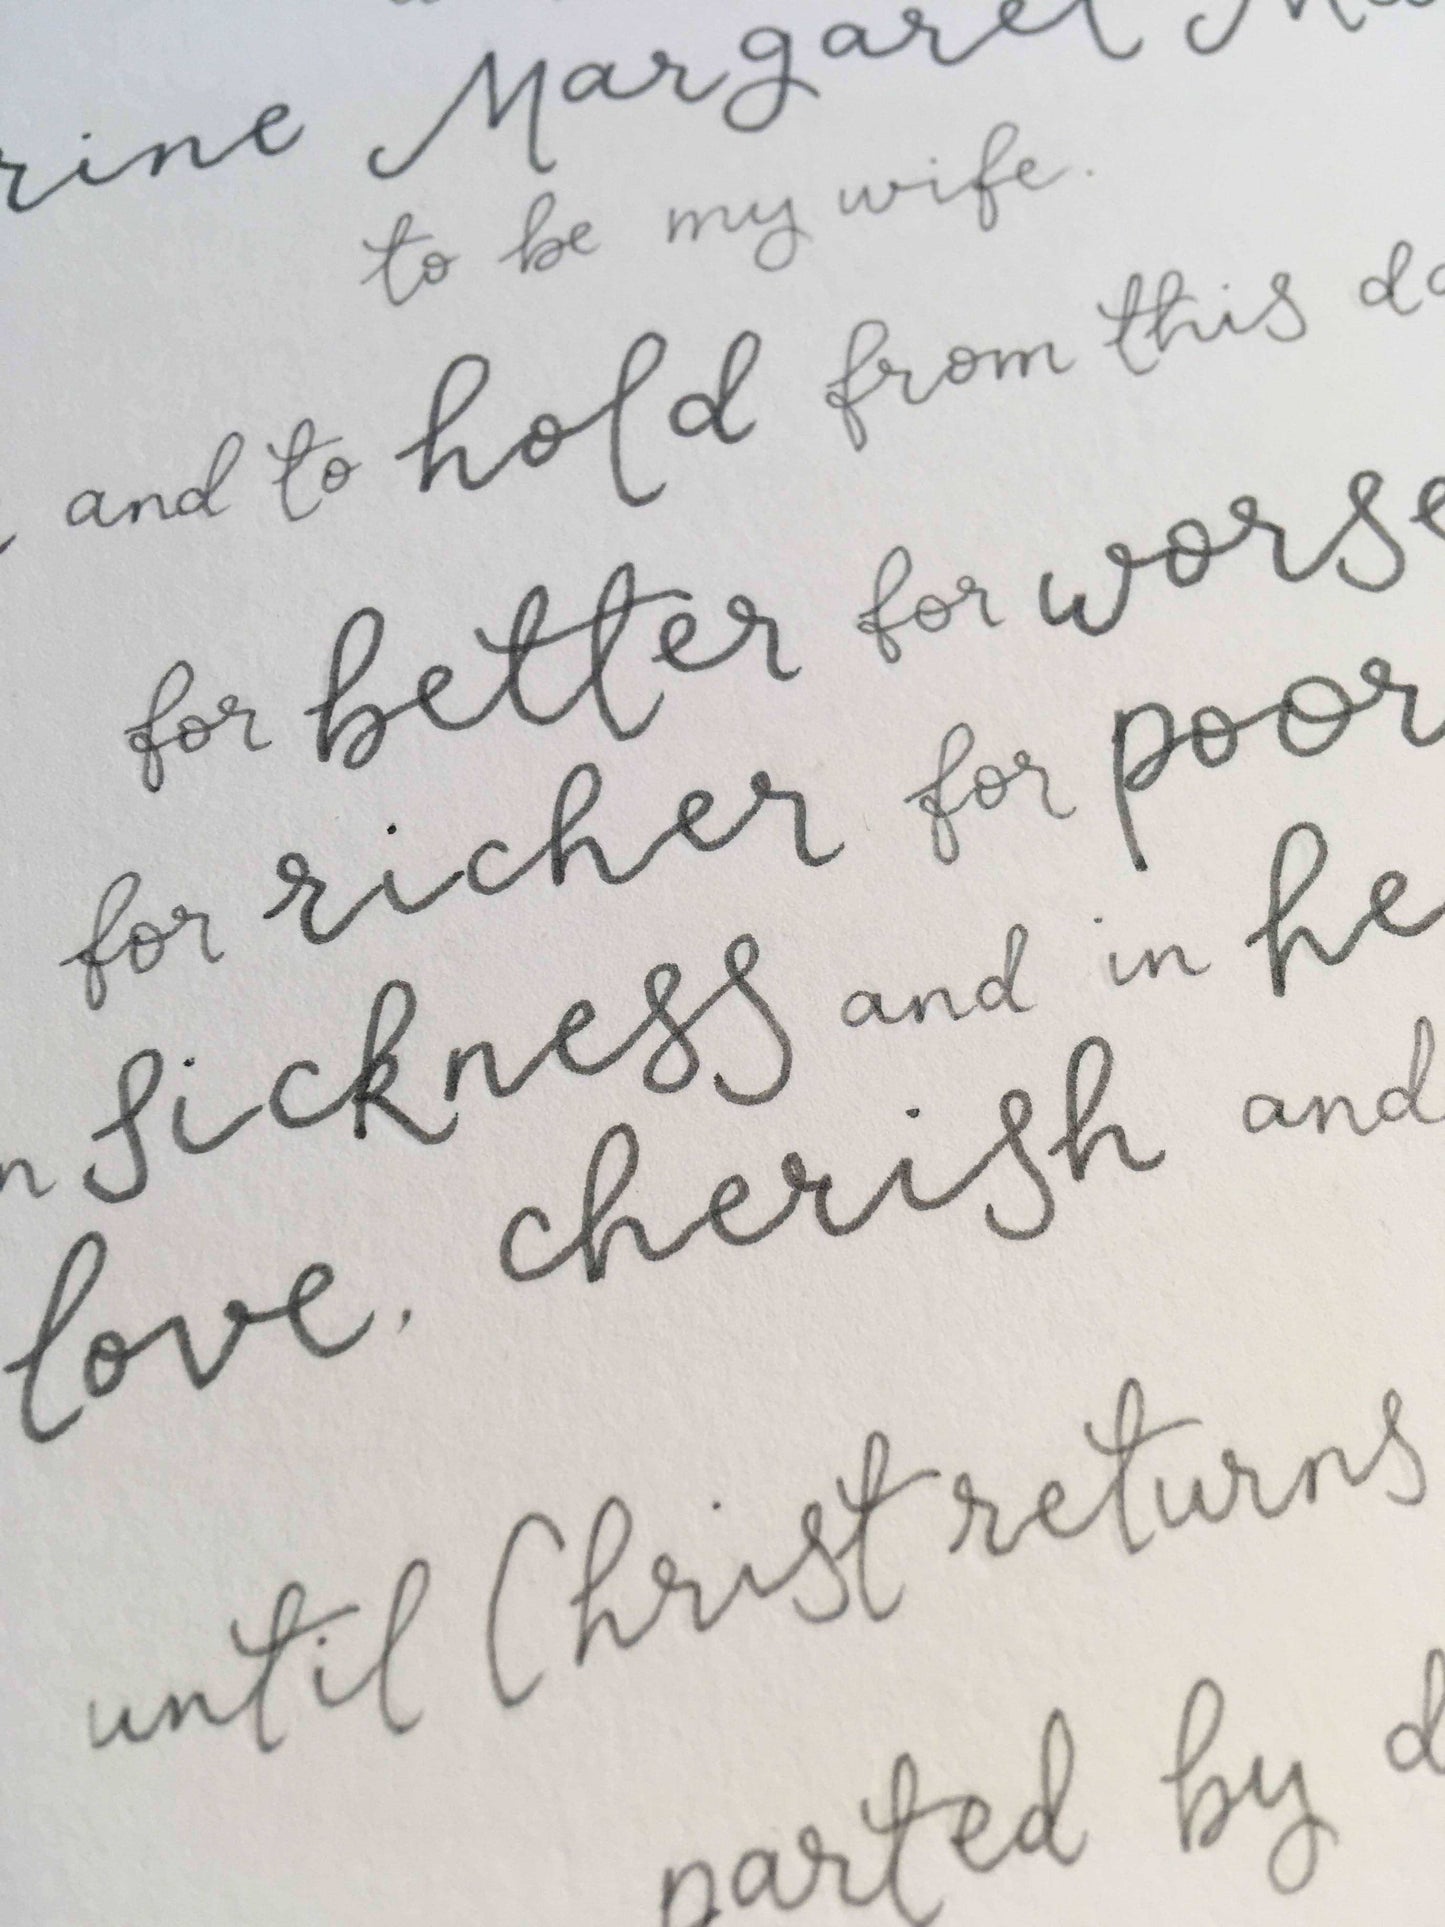 Margaret
to be my wife.
and to hold from this
for better for worse
for richer for
sickness and in
love, cherish and
until Christ returns
parted by